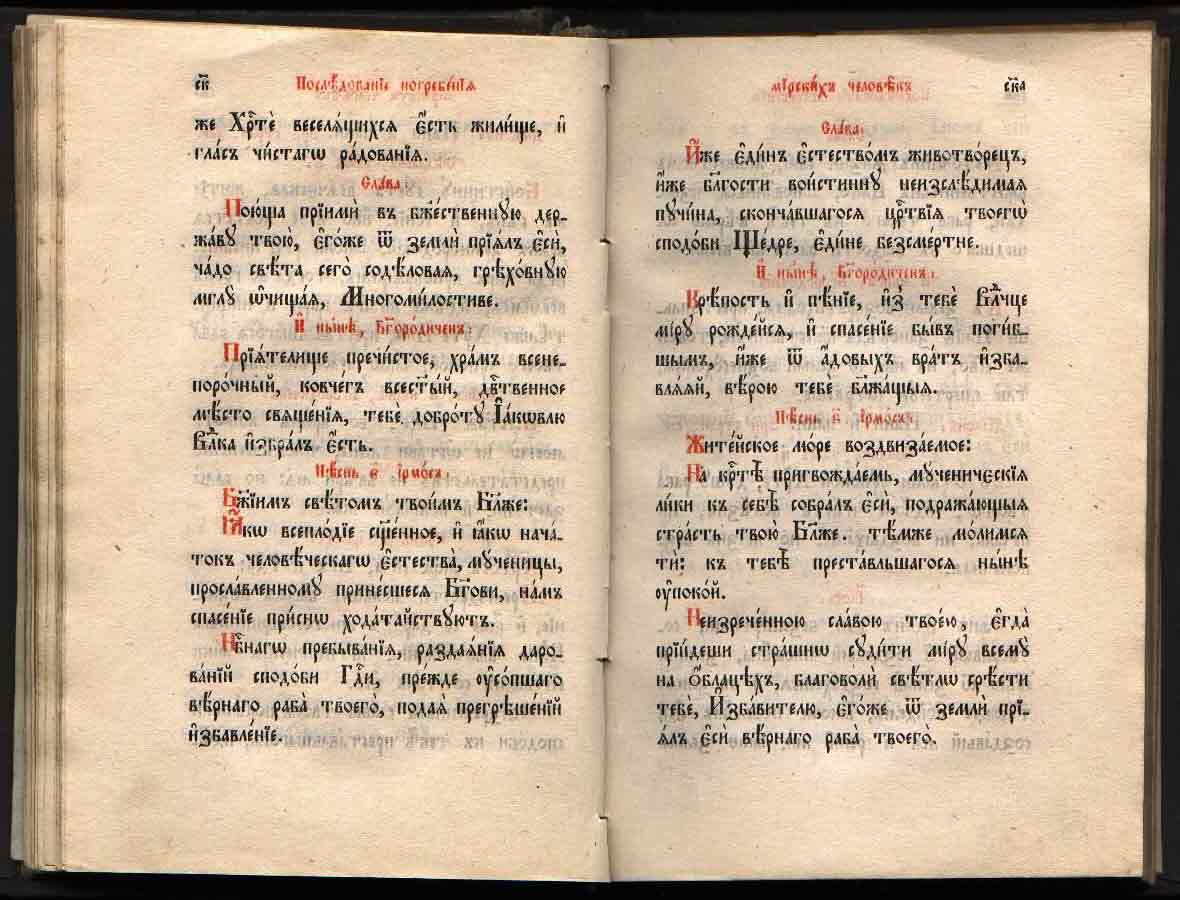 ск҃
Послѣ́дованїе погребе́нїѧ
же Хрⷭ҇тѐ веселѧ́щихсѧ є҆́сть жили́ще, и҆
гла́съ чи́стагѡ ра́дованїѧ.
Сла́ва
Пою́ща прїимѝ въ бж҃е́ственную дер-
жа́ву твою̀, є҆го́же ѿ землѝ прїѧ́лъ є҆сѝ,
ча́до свѣ́та сего̀ содѣ́ловаѧ, грѣхо́вную
мглу̀ ѡ҆чища́ѧ, Многоми́лостиве.
И҆ ны́нѣ, Бг҃оро́диченъ:
Прїѧ́телище пречи́стое, хра́мъ всене-
поро́чный, ковче́гъ всест҃ы́й, дв҃ственное
мѣ́сто свѧще́нїѧ, тебѐ добро́ту І҆а́кѡвлю
Влⷣка и҆збра́лъ є҆́сть.
Пѣ́снь є҃ і҆рмо́съ:
Бж҃їимъ свѣ́томъ твои́мъ Бл҃же:
Ꙗ҆́кѡ всепло́дїе сщ҃е́нное, и҆ ꙗ҆́кѡ нача́-
токъ человѣ́ческагѡ є҆стества̀, мч҃еницы,
просла́вленному принесшесѧ Бг҃ови, на́мъ
спасе́нїе при́снѡ хода́тайствуютъ.
Нб҃нагѡ пребыва́нїѧ, раздаѧ́нїѧ даро-
ва́нїй сподо́би Гдⷭ҇и, пре́жде ѹ҆со́пшаго
вѣ́рнаго раба̀ твоего̀, подаѧ̀ прегрѣше́нїй
и҆збавле́нїе.
мїрски́хъ человѣ́къ
ск҃а
Сла́ва:
И҆́же є҆ди́нъ є҆стество́мъ животво́рецъ,
и҆́же бл҃гости вои́стинну неизслѣ́димаѧ
пучи́на, сконча́вшагосѧ црⷭ҇твїѧ твоегѡ̀
сподо́би Ще́дре, є҆ди́не безсме́ртне.
И҆ ны́нѣ, Бг҃оро́диченъ:
Крѣ́пость и҆ пѣ́нїе, и҆з̾ тебѐ Влⷣчце
мі́ру рожде́йсѧ, и҆ спасе́нїе бы́въ поги́б-
шымъ, и҆́же ѿ а҆́довыхъ вра́тъ и҆зба-
влѧ́ѧй, вѣ́рою тебѐ блж҃а́щыѧ.
Пѣ́снь ѕ҃ і҆рмо́съ:
Жите́йское мо́ре воздвиза́емое:
На крⷭ҇тѣ̀ пригвожда́емь, мч҃еническїѧ
ли́ки къ себѣ̀ собра́лъ є҆сѝ, подража́ющыѧ
стра́сть твою̀ Бл҃же. тѣ́мже мо́лимсѧ
тѝ: къ тебѣ̀ преста́вльшагосѧ ны́нѣ
ѹ҆поко́й.
Неизрече́нною сла́вою твое́ю, є҆гда̀
прїи́деши стра́шнѡ суди́ти мі́ру всему̀
на ѻ҆́блацѣхъ, благоволѝ свѣ́тлѡ срѣ́сти
тебѐ, И҆зба́вителю, є҆го́же ѿ землѝ прї-
ѧ́лъ є҆сѝ вѣ́рнаго раба̀ твоего̀.